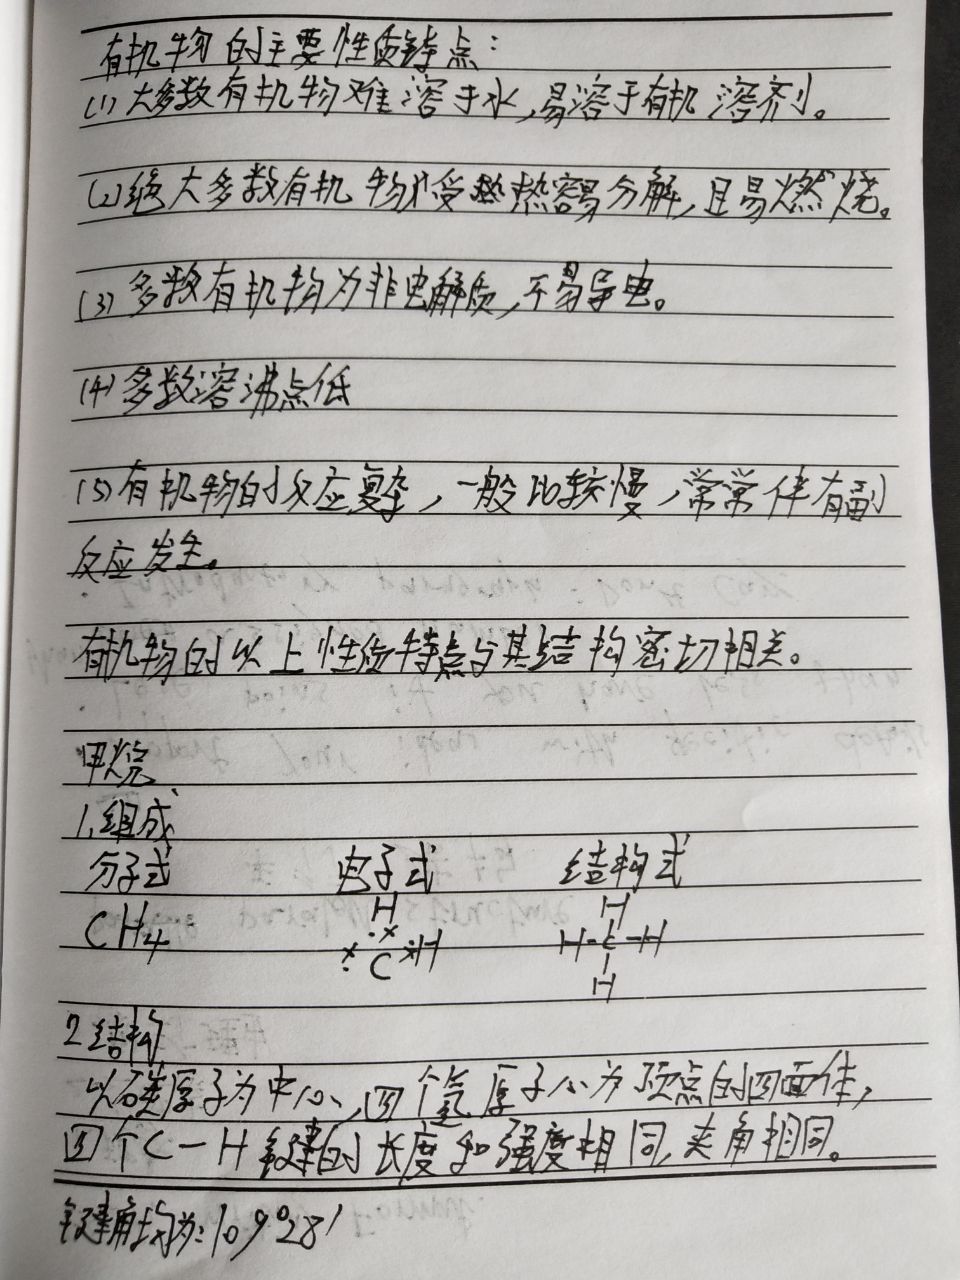 有机物的主要性质特点：
(1)大多数有机物难溶于水，易溶于有机溶剂。
(2)绝大多数有机物受热容易分解，且易燃烧。
(3)多数有机物为非电解质，不易导电。
(4)多数溶沸点低
(5)有机物的反应复杂，一般比较慢，常常伴有副
反应发生。
有机物的以上性质特点与其结构密切相关。
甲烷
1.组成
分子式 电子式 结构式
CH4
H
C H
H
H-C-H
H
2结构
以碳原子为中心，四个氢原子心为顶点的四面体，
四个C－H键的长度和强度相同，夹角相同。
键角均为：109°28′